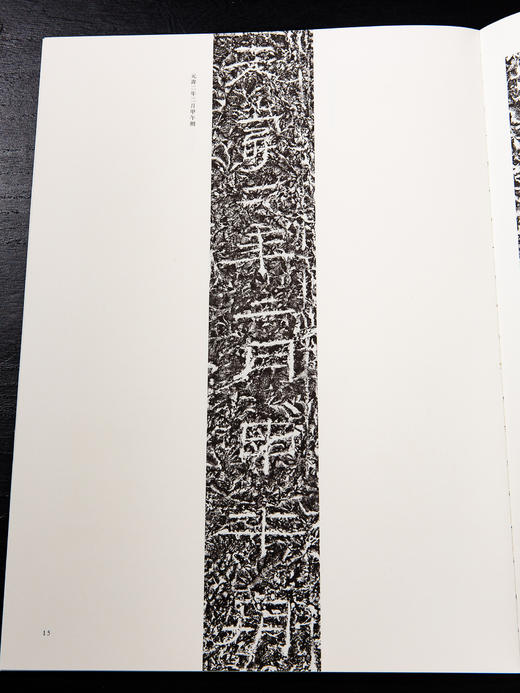 元壽二年二月甲午朔
元壽二年二月甲午朔
15